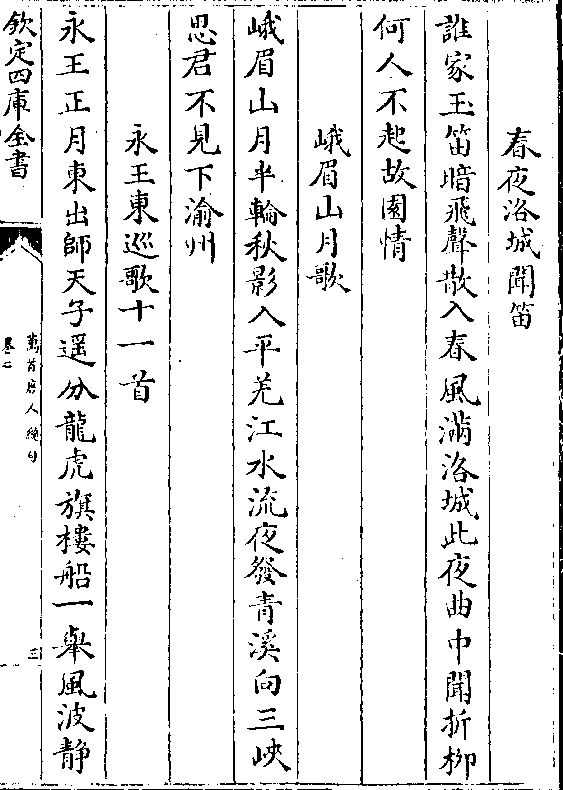 春夜洛城聞笛
誰家玉笛暗飛聲散入春風滿洛城此夜曲中聞折柳
何人不起故園情
峨眉山月歌
峨眉山月半輪秋影入平羌江水流夜發青溪向三峽
思君不見下渝州
永王東巡歌十一首
永王正月東出師天子遥分龍虎旗樓船一舉風波静
欽定四庫全書
萬首唐人絶句
卷七
三